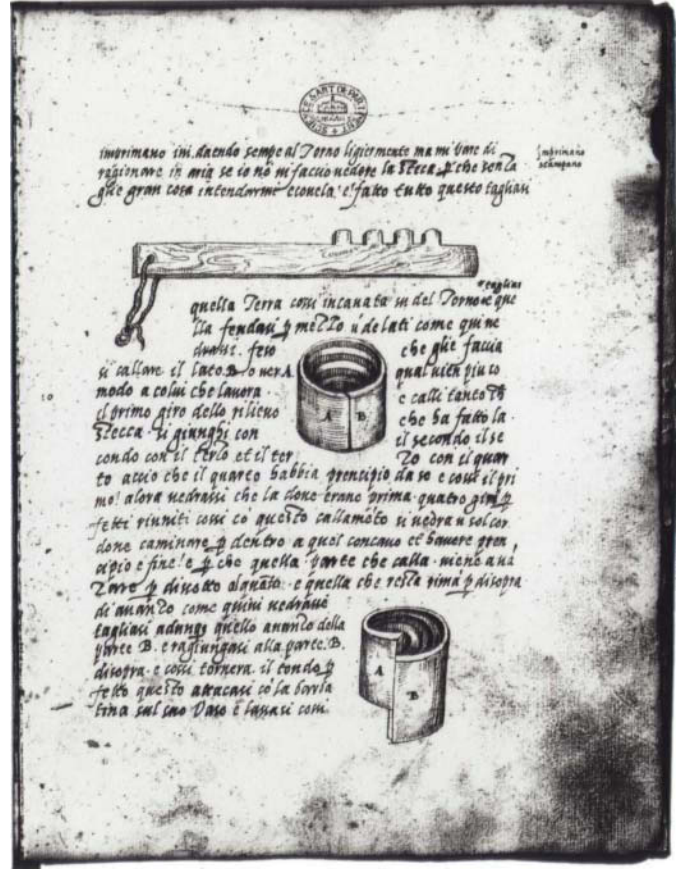 imprimano ini. dacndo sempe al Torno ligiermente ma mi Pare di
ragionare in aria se io nõ vi faccio vedere la Stecca ꝑ che senza
gñe gran cosa intendarmi eccovela. e fatto tutto questo tagliasi
Imprimano
stampano
tagliasi
quella Terra cossi incanata su del Torno e que
lla fendasi ꝑ mezzo ú de lati come qui ne
drassi. feso
che glie faccia
si callare il lato. B. o ver. A.
qual vien piu co
modo a colui che lavora.
e calli tanco
il primo giro dello rilieuo
che ha fatto la.
Stecca. si giunghi con
il secondo il se
condo con il terzo et il ter
zo con il quar
to accio che il quarto habbia prencipio da se e cossi il pri
mo! alora vedrassi che la done erano prima. quatro giri ꝑ
fetti riuniti cossi cõ questo callamẽto si vedra ũ sol cor
done caminare ꝑ dentro a quel concavo et havere pren
cipio e fine! e ꝑ che quella. parte che calla. viene ava
zare ꝑ disotto alquãto. e quella che resta rima ꝑ disopra
di avanzo come quivi vedrave
tagliasi adunq quello avanzo della
parte B. e ragiungasi alla parte. B.
disopra. e cossi tornera. il tondo ꝑ
fetto questo attacasi cõ la barba
tina sul suo Vaso e lassasi cosi
A B
A
B